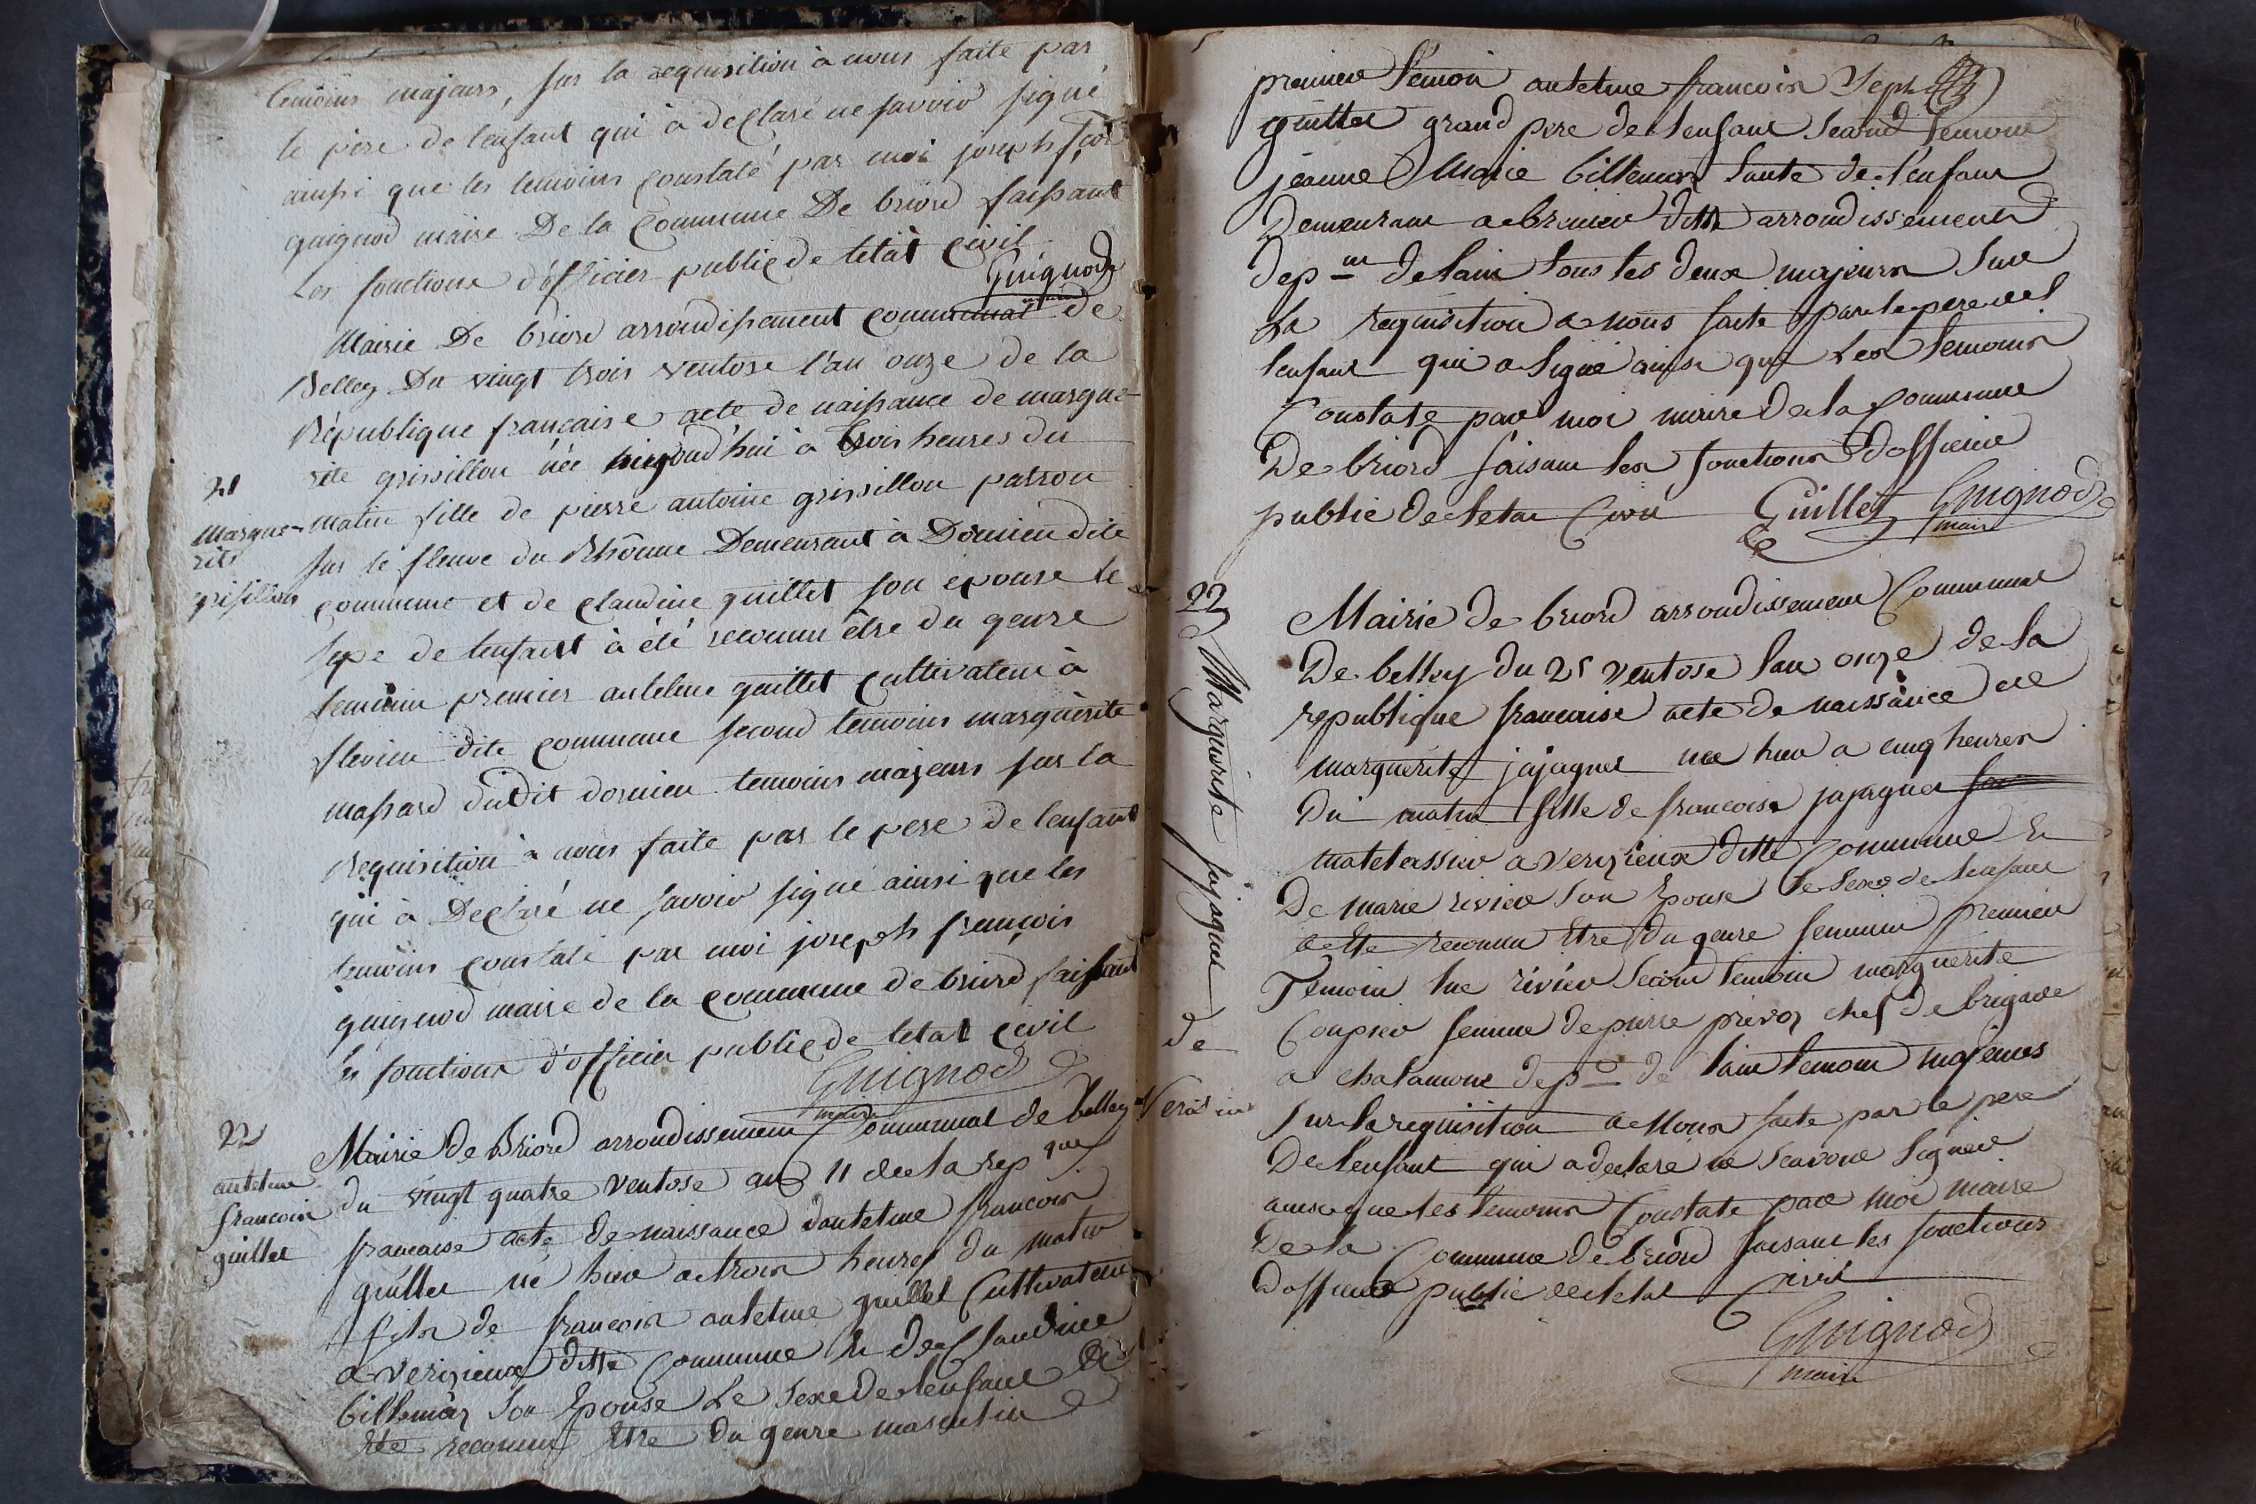 temoins majeurs, sur la requisition à nous faite par
le père de lenfant qui à declaré ne savoir signé
ainsi que les temoins constaté par moi joseph fçois
guignod maire De la Commune De briord faisant
Les fonctions d'officier public de létat civil
Guignod
maire
Mairie De briord arrondissement communal de
Belley Du vingt trois ventose l'an onze de la
République française acte de naissance de margue-
rite grissillon née aujourd'hui à trois heures du
21
Margue-
rite
grisillon
matin fille de pierre antoine grissillon patron
sur le fleuve du Rhône Demeurant à Dornieu dite
commune et de claudine guillet son epouse le
sexe de lenfant à été reconnu être du genre
feminin premier antelme guillet cultivateur à
flevieu dite commune second temoins marguerite
massard dudit dornieu temoins majeurs sur la
Requisition à nous faite par le pere de lenfant
qui à Declaré ne savoir signé ainsi que les
temoins constaté par moi joseph françois
guignod maire de la commune de briord faisant
les fonctions d'officier public de létat civil
Guignod
maire
22
antelme
francois
guillet
Mairie de Briord arrondissement Communal de belley
du vingt quatre ventose an 11 de la repque
francaise acte de naissance dantelme francois
guillet né hier a trois heures du matin
fils de francois antelme guillet Cultivateur
a verizieux ditte Commune Et de Claudine
billemaz son Epouse Le sexe de lenfant a
été reconnu Etre du genre masculin
premier temoin antelme francois Joseph
guillet grand pere de lenfant second temoin
jeanne Marie billemaz tante de l'enfant
Demeurant a brenier ditte arrondissement
depmt de lain tous les deux majeurs sur
La requisition a nous faite par le pere de
lenfant qui a Signé ainsi que Les temoins
Constate par moi maire de la Commune
De briord faisant les fonctions d'officier
public de letat Civil Guillet Guignod
maire
22
Marguerite jajaquet
de
Verizieux
Mairie de briord arrondissement Communal
De belley du 25 ventose lan onze de la
republique francaise acte de naissance de
marguerite jajaquet née hier a cinq heures
Du matin fille de francois jajaquet
matelassier a verizieux ditte Commune Et
De marie revier son Epouse le sexe de lenfant
a ette reconnu Etre du genre feminin premier
Temoin revier second temoin marguerite
femme de pierre prevoz chef de brigade
a chalamont depmt de lain temoin majeurs
sur la requisition a Nous faite par le pere
De lenfant qui a declare ne scavoir Signer
ainsi que les temoins Constate par moi maire
De la Commune De briord faisant les fonctions
D'officier public de letat Civil
Guignod
maire